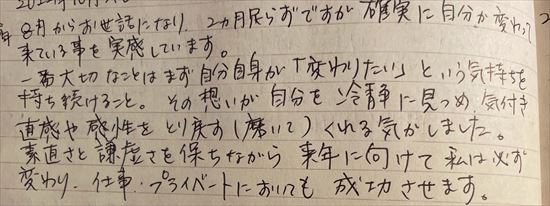 8月からお世話になり、2ヵ月足らずですが確実に自分が変わって
来ている事を実感しています。
一番大切なことはまず自分自身が「変わりたい」という気持ちを
持ち続けること。その想いが自分を冷静に見つめ、気付き
直感や感性をとり戻す(磨いて)くれる気がしました。
素直さと謙虚さを保ちながら来年に向けて私は必ず
変わり、仕事・プライベートにおいても成功させます。